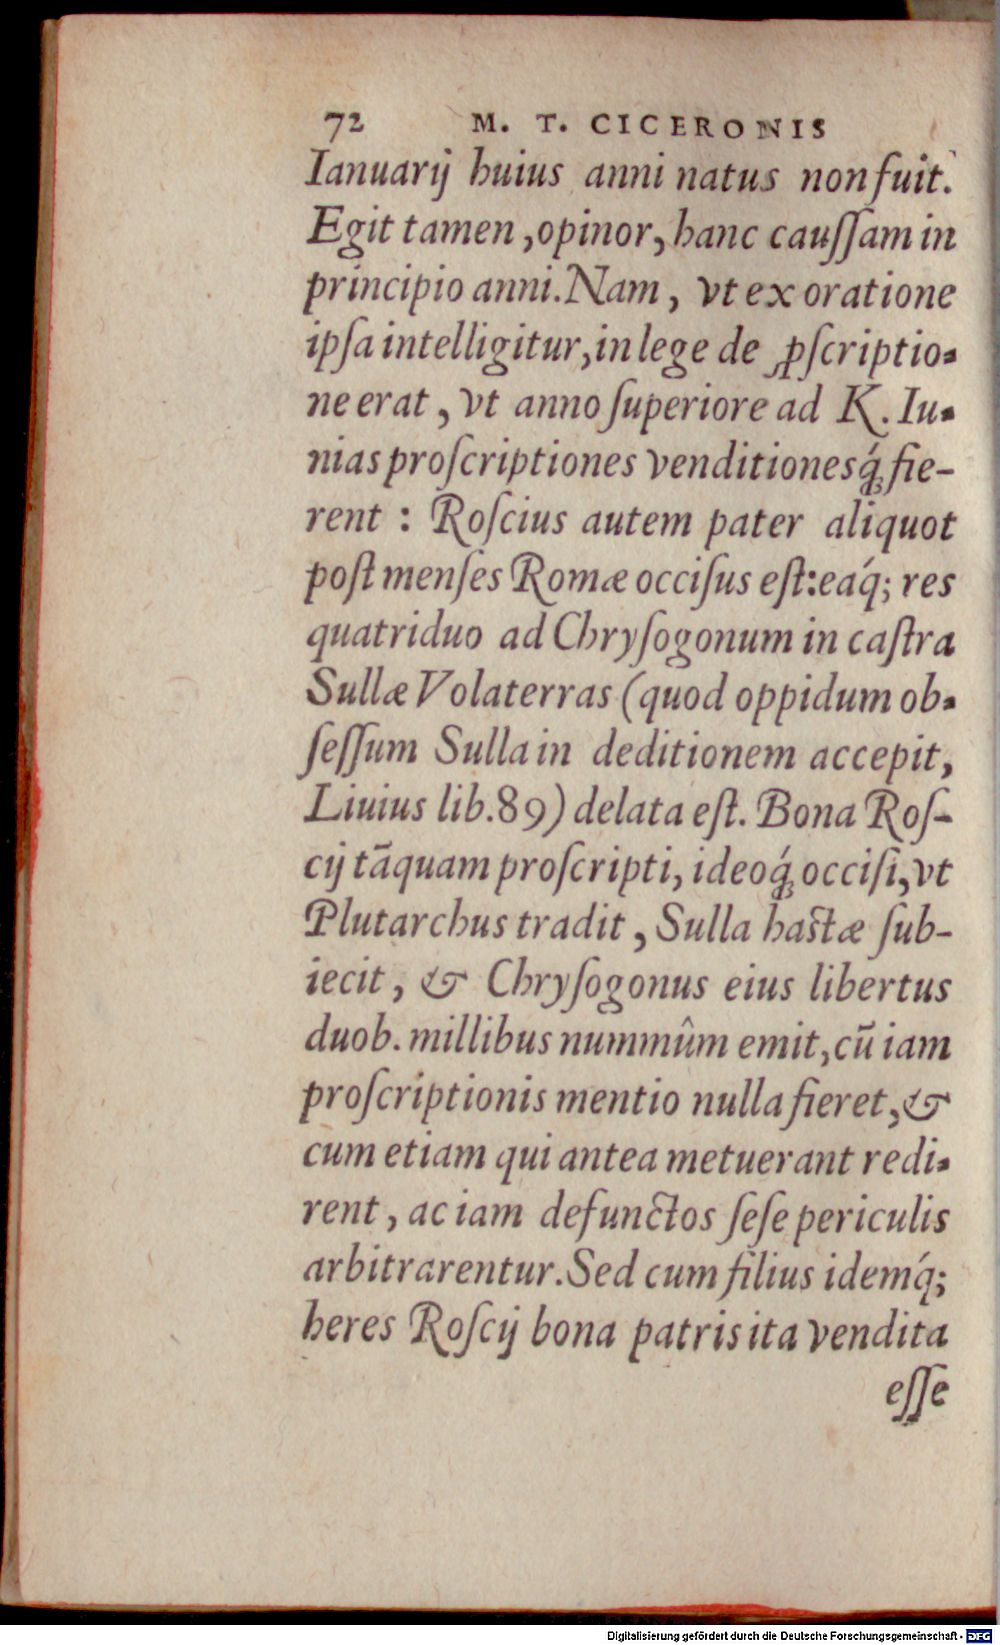 72 M. T. CICERONIS
Ianuarij huius anni natus non fuit.
Egit tamen, opinor, hanc cauſſam in
principio anni. Nam, vt ex oratione
ipſa intelligitur, in lege de ꝓſcriptio-
ne erat, vt anno ſuperiore ad K. Iu-
nias proſcriptiones venditionesq́ꝫ fie-
rent: Roſcius autem pater aliquot
poſt menſes Romæ occiſus eſt: eaq́; res
quatriduo ad Chryſogonum in caſtra
Sullæ Volaterras (quod oppidum ob-
ſeſſum Sulla in deditionem accepit,
Liuius lib. 89) delata eſt. Bona Roſ-
cij tãquam proſcripti, ideoq́ꝫ occiſi, vt
Plutarchus tradit, Sulla haſtæ ſub-
iecit, & Chryſogonus eius libertus
duob. millibus nummûm emit, cũ iam
proſcriptionis mentio nulla fieret, &
cum etiam qui antea metuerant redi-
rent, ac iam defunctos ſeſe periculis
arbitrarentur. Sed cum filius idemq́;
heres Roſcij bona patris ita vendita
eſſe
Digitalisierung gefördert durch die Deutsche Forschungsgemeinschaft - DFG